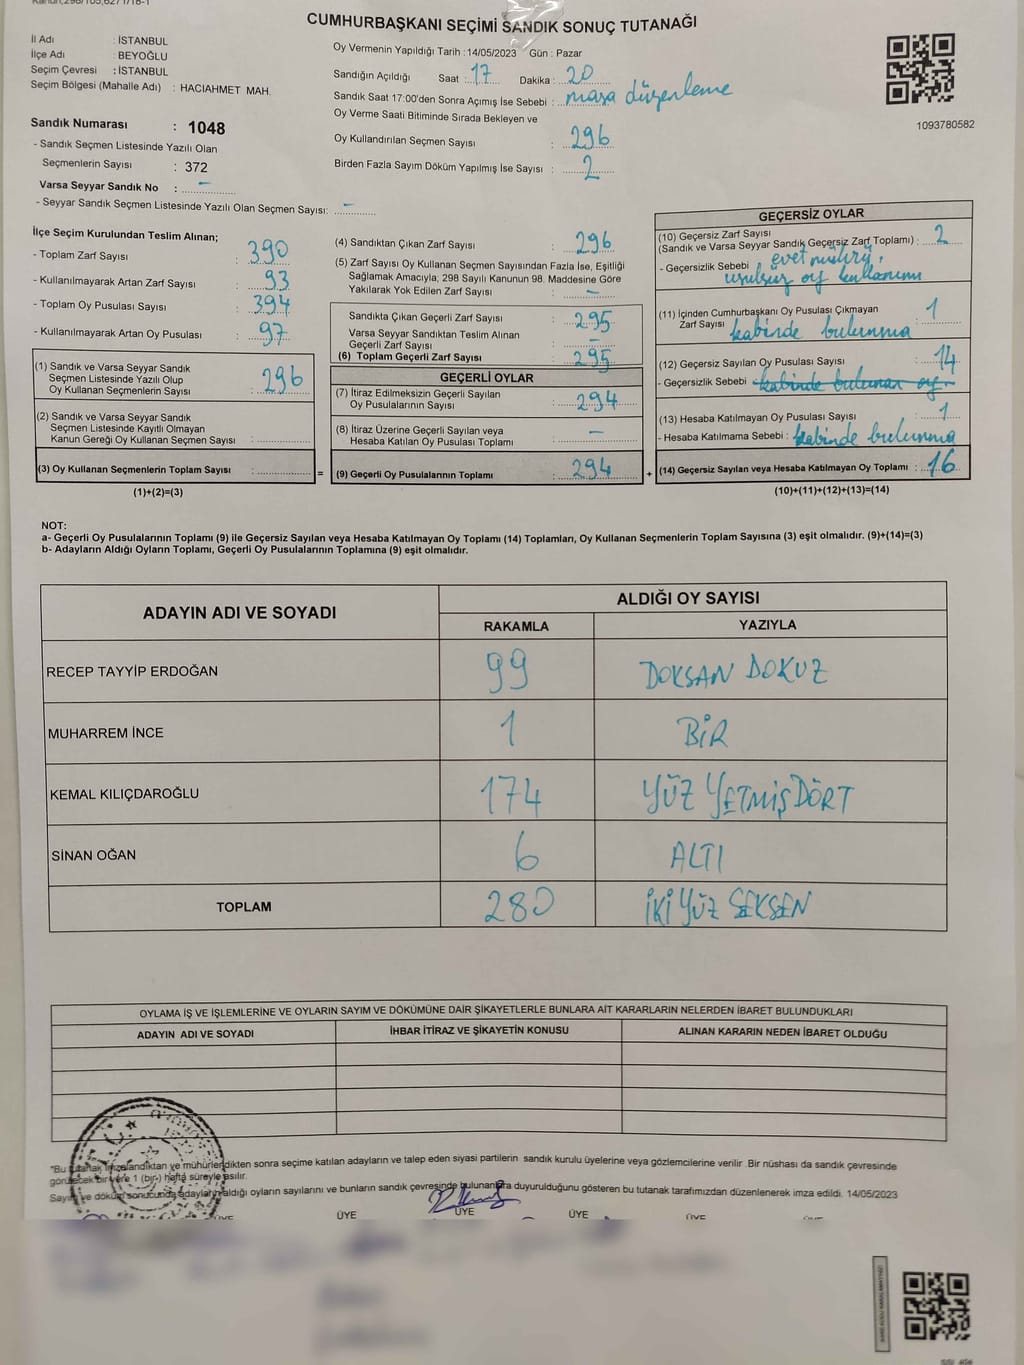 CUMHURBAŞKANI SEÇİMİ SANDIK SONUÇ TUTANAĞI
İl Adı : İSTANBUL
İlçe Adı : BEYOĞLU
Seçim Çevresi : İSTANBUL
Seçim Bölgesi (Mahalle Adı) : HACIAHMET MAH.
Sandık Numarası : 1048
- Sandık Seçmen Listesinde Yazılı Olan
Seçmenlerin Sayısı : 372
Varsa Seyyar Sandık No : -
- Seyyar Sandık Seçmen Listesinde Yazılı Olan Seçmen Sayısı: -
Oy Vermenin Yapıldığı Tarih : 14/05/2023 Gün : Pazar
Sandığın Açıldığı Saat : 17 Dakika : 20
Sandık Saat 17:00'den Sonra Açımış İse Sebebi : masa düzenleme
Oy Verme Saati Bitiminde Sırada Bekleyen ve
Oy Kullandırılan Seçmen Sayısı : 296
Birden Fazla Sayım Döküm Yapılmış İse Sayısı : 2
1093780582
İlçe Seçim Kurulundan Teslim Alınan;
- Toplam Zarf Sayısı : 390
- Kullanılmayarak Artan Zarf Sayısı : 93
- Toplam Oy Pusulası Sayısı : 394
- Kullanılmayarak Artan Oy Pusulası : 97
(1) Sandık ve Varsa Seyyar Sandık
Seçmen Listesinde Yazılı Olup
Oy Kullanan Seçmenlerin Sayısı : 296
(2) Sandık ve Varsa Seyyar Sandık
Seçmen Listesinde Kayıtlı Olmayan
Kanun Gereği Oy Kullanan Seçmen Sayısı :
(3) Oy Kullanan Seçmenlerin Toplam Sayısı : =
(1)+(2)=(3)
(4) Sandıktan Çıkan Zarf Sayısı : 296
(5) Zarf Sayısı Oy Kullanan Seçmen Sayısından Fazla İse, Eşitliği
Sağlamak Amacıyla, 298 Sayılı Kanunun 98. Maddesine Göre
Yakılarak Yok Edilen Zarf Sayısı : -
Sandıkta Çıkan Geçerli Zarf Sayısı : 295
Varsa Seyyar Sandıktan Teslim Alınan
Geçerli Zarf Sayısı : -
(6) Toplam Geçerli Zarf Sayısı : 295
GEÇERLİ OYLAR
(7) İtiraz Edilmeksizin Geçerli Sayılan
Oy Pusulalarının Sayısı : 294
(8) İtiraz Üzerine Geçerli Sayılan veya
Hesaba Katılan Oy Pusulası Toplamı : -
(9) Geçerli Oy Pusulalarının Toplamı : 294 +
GEÇERSİZ OYLAR
(10) Geçersiz Zarf Sayısı
(Sandık ve Varsa Seyyar Sandık Geçersiz Zarf Toplamı) : 2
- Geçersizlik Sebebi : evet mührü,
usulsüz oy kullanımı
(11) İçinden Cumhurbaşkanı Oy Pusulası Çıkmayan
Zarf Sayısı : 1
kabinde bulunma
(12) Geçersiz Sayılan Oy Pusulası Sayısı : 14
- Geçersizlik Sebebi : kabinde bulunan oy
(13) Hesaba Katılmayan Oy Pusulası Sayısı : 1
- Hesaba Katılmama Sebebi : kabinde bulunma
(14) Geçersiz Sayılan veya Hesaba Katılmayan Oy Toplamı : 16
(10)+(11)+(12)+(13)=(14)
NOT:
a- Geçerli Oy Pusulalarının Toplamı (9) ile Geçersiz Sayılan veya Hesaba Katılmayan Oy Toplamı (14) Toplamları, Oy Kullanan Seçmenlerin Toplam Sayısına (3) eşit olmalıdır. (9)+(14)=(3)
b- Adayların Aldığı Oyların Toplamı, Geçerli Oy Pusulalarının Toplamına (9) eşit olmalıdır.
ADAYIN ADI VE SOYADI ALDIĞI OY SAYISI
RAKAMLA YAZIYLA
RECEP TAYYİP ERDOĞAN 99 DOKSAN DOKUZ
MUHARREM İNCE 1 BİR
KEMAL KILIÇDAROĞLU 174 YÜZ YETMİŞ DÖRT
SİNAN OĞAN 6 ALTI
TOPLAM 280 İKİ YÜZ SEKSEN
OYLAMA İŞ VE İŞLEMLERİNE VE OYLARIN SAYIM VE DÖKÜMÜNE DAİR ŞİKAYETLERLE BUNLARA AİT KARARLARIN NELERDEN İBARET BULUNDUKLARI
ADAYIN ADI VE SOYADI İHBAR İTİRAZ VE ŞİKAYETİN KONUSU ALINAN KARARIN NEDEN İBARET OLDUĞU
"Bu tutanak imzalandıktan ve mühürlendikten sonra seçime katılan adayların ve talep eden siyasi partilerin sandık kurulu üyelerine veya gözlemcilerine verilir. Bir nüshası da sandık çevresinde
görülecek bir yere 1 (bir) hafta süreyle asılır.
Sayım ve döküm sonucunda adayların aldığı oyların sayılarını ve bunların sandık çevresinde bulunanlara duyurulduğunu gösteren bu tutanak tarafımızdan düzenlenerek imza edildi. 14/05/2023
ÜYE ÜYE ÜYE ÜYE